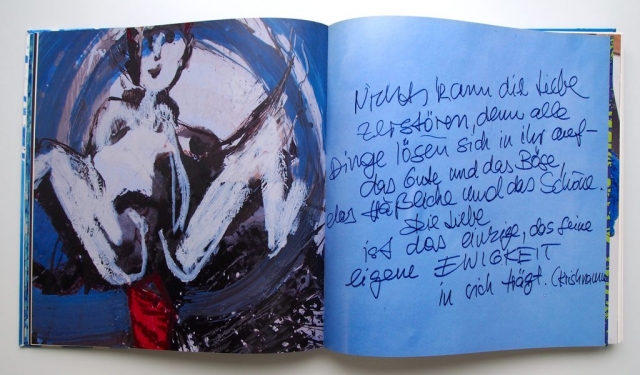 Nichts kann die Liebe
zerstören, denn alle
Dinge lösen sich in ihr auf-
das Gute und das Böse,
das Häßliche und das Schöne.
Die Liebe
ist das einzige, das seine
eigene EWIGKEIT
in sich trägt.